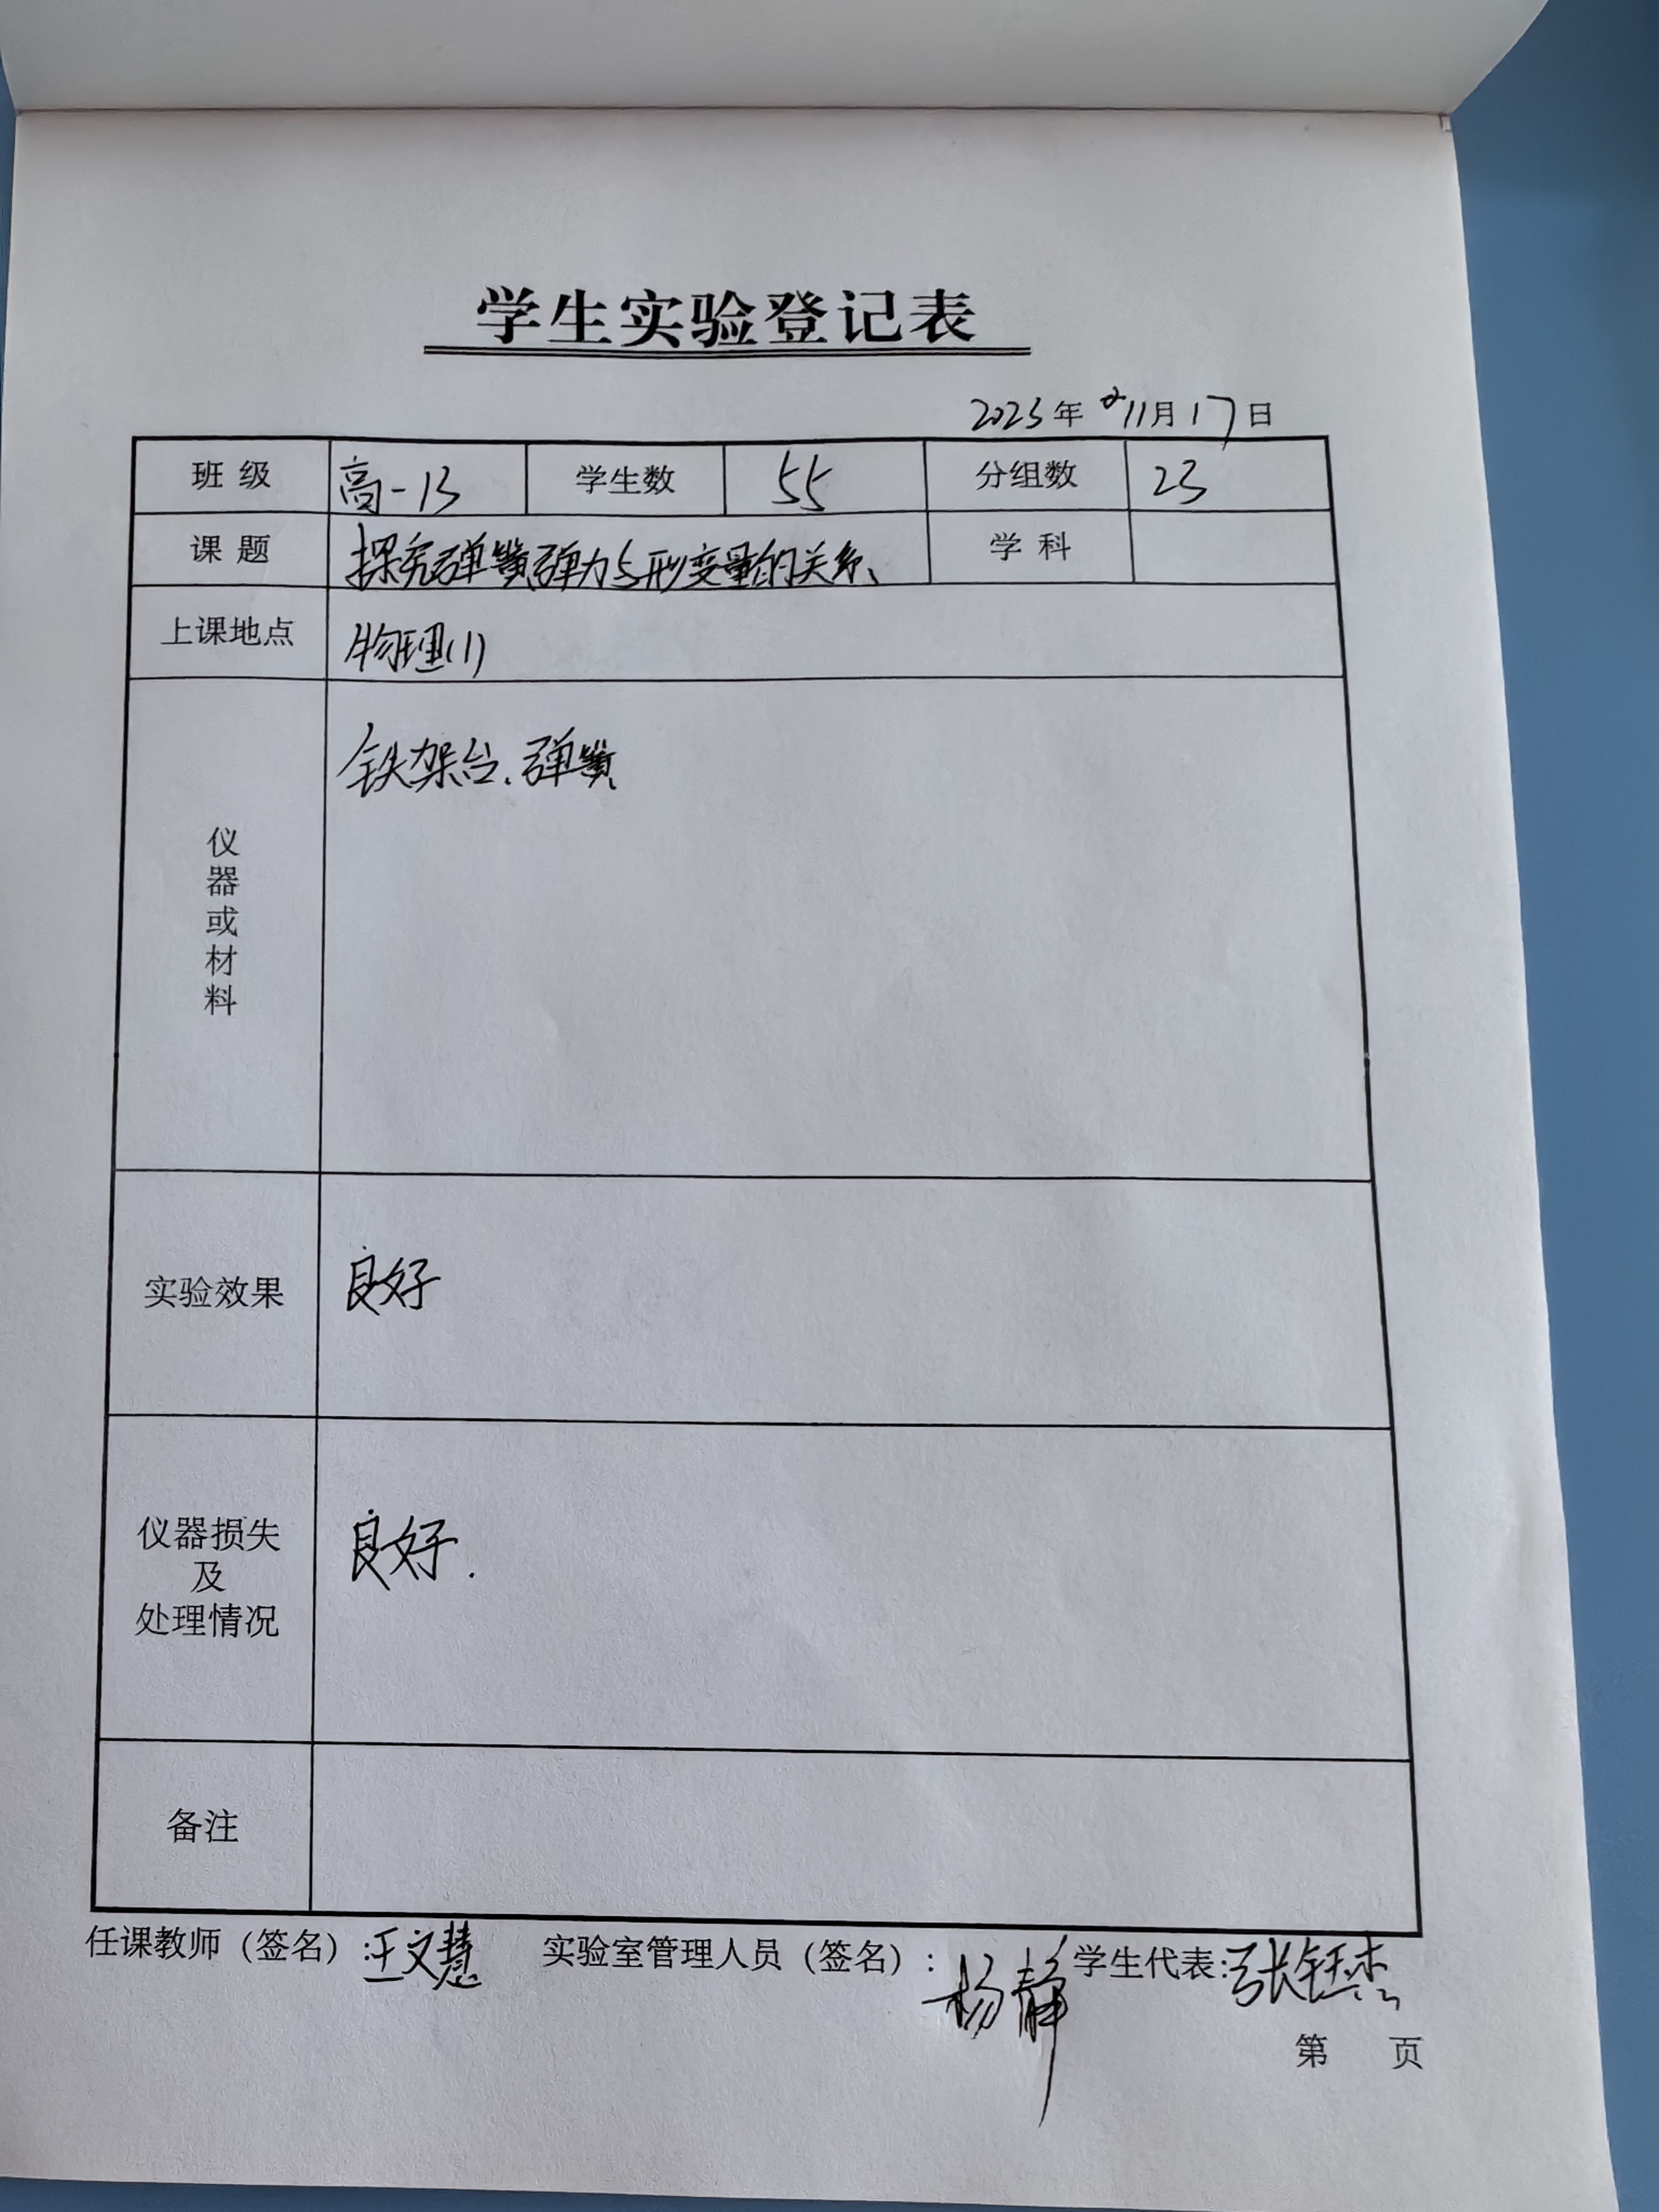 学生实验登记表
2023年11月17日
班级 高一13 学生数 55 分组数 23
课题 探究弹簧弹力与形变量的关系、 学科
上课地点 物理(1)
仪器或材料 铁架台、弹簧
实验效果 良好
仪器损失及处理情况 良好.
备注
任课教师（签名）:王文慧 实验室管理人员（签名）: 杨静 学生代表:张钰杰
第 页